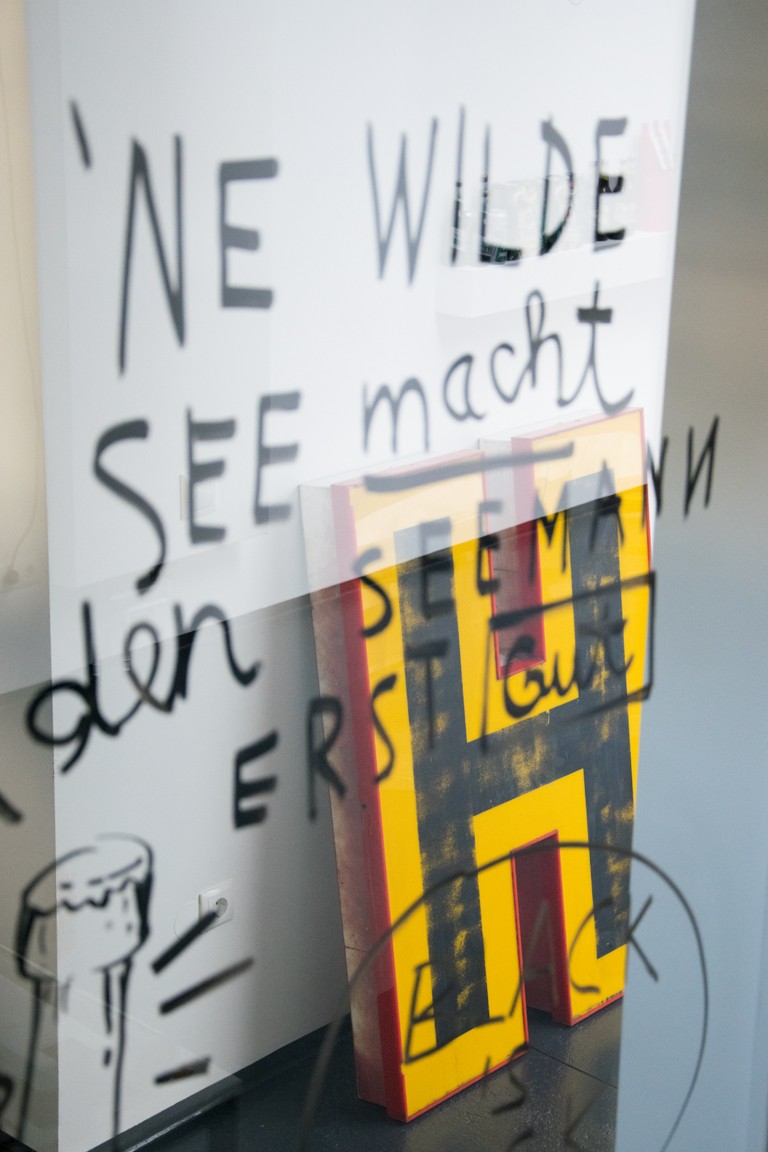 'NE WILDE
SEE macht
den SEEMANN
ERST Gut
H
BLACK
IS